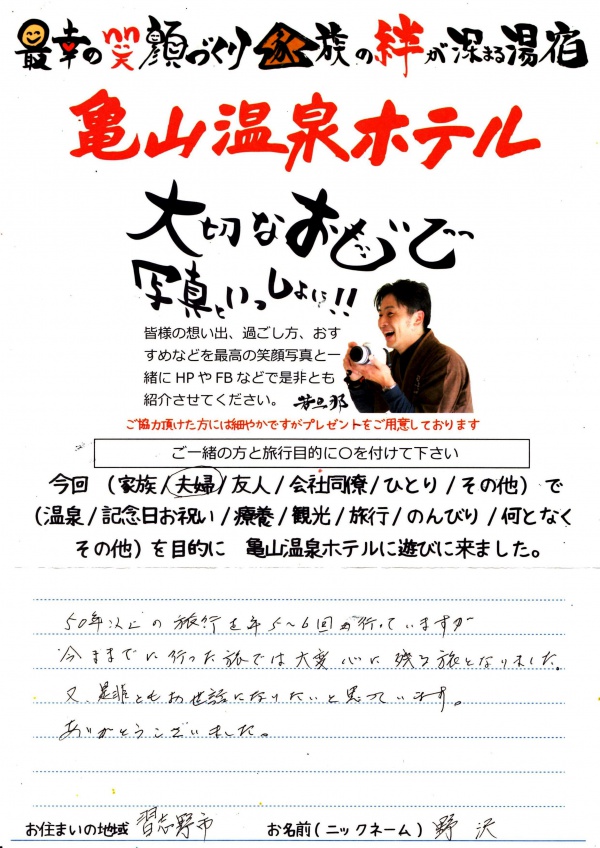 最幸の笑顔づくり 家族の絆が深まる湯宿
亀山温泉ホテル
大切なおもいで
写真といっしょに!!
皆様の想い出、過ごし方、おす
すめなどを最高の笑顔写真と一
緒にHPやFBなどで是非とも
紹介させてください。 若旦那
ご協力頂けた方には細やかですがプレゼントをご用意しております
ご一緒の方と旅行目的に○を付けて下さい
今回 (家族/夫婦/友人/会社同僚/ひとり/その他) で
(温泉/記念日お祝い/療養/観光/旅行/のんびり/何となく
その他) を目的に 亀山温泉ホテルに遊びに来ました。
50年以上の旅行を年5~6回が行っていますが
今までに行った旅では大変心に残る旅となりました。
又、是非ともお世話になりたいと思っています。
ありがとうございました。
お住まいの地域 習志野市 お名前(ニックネーム) 野沢